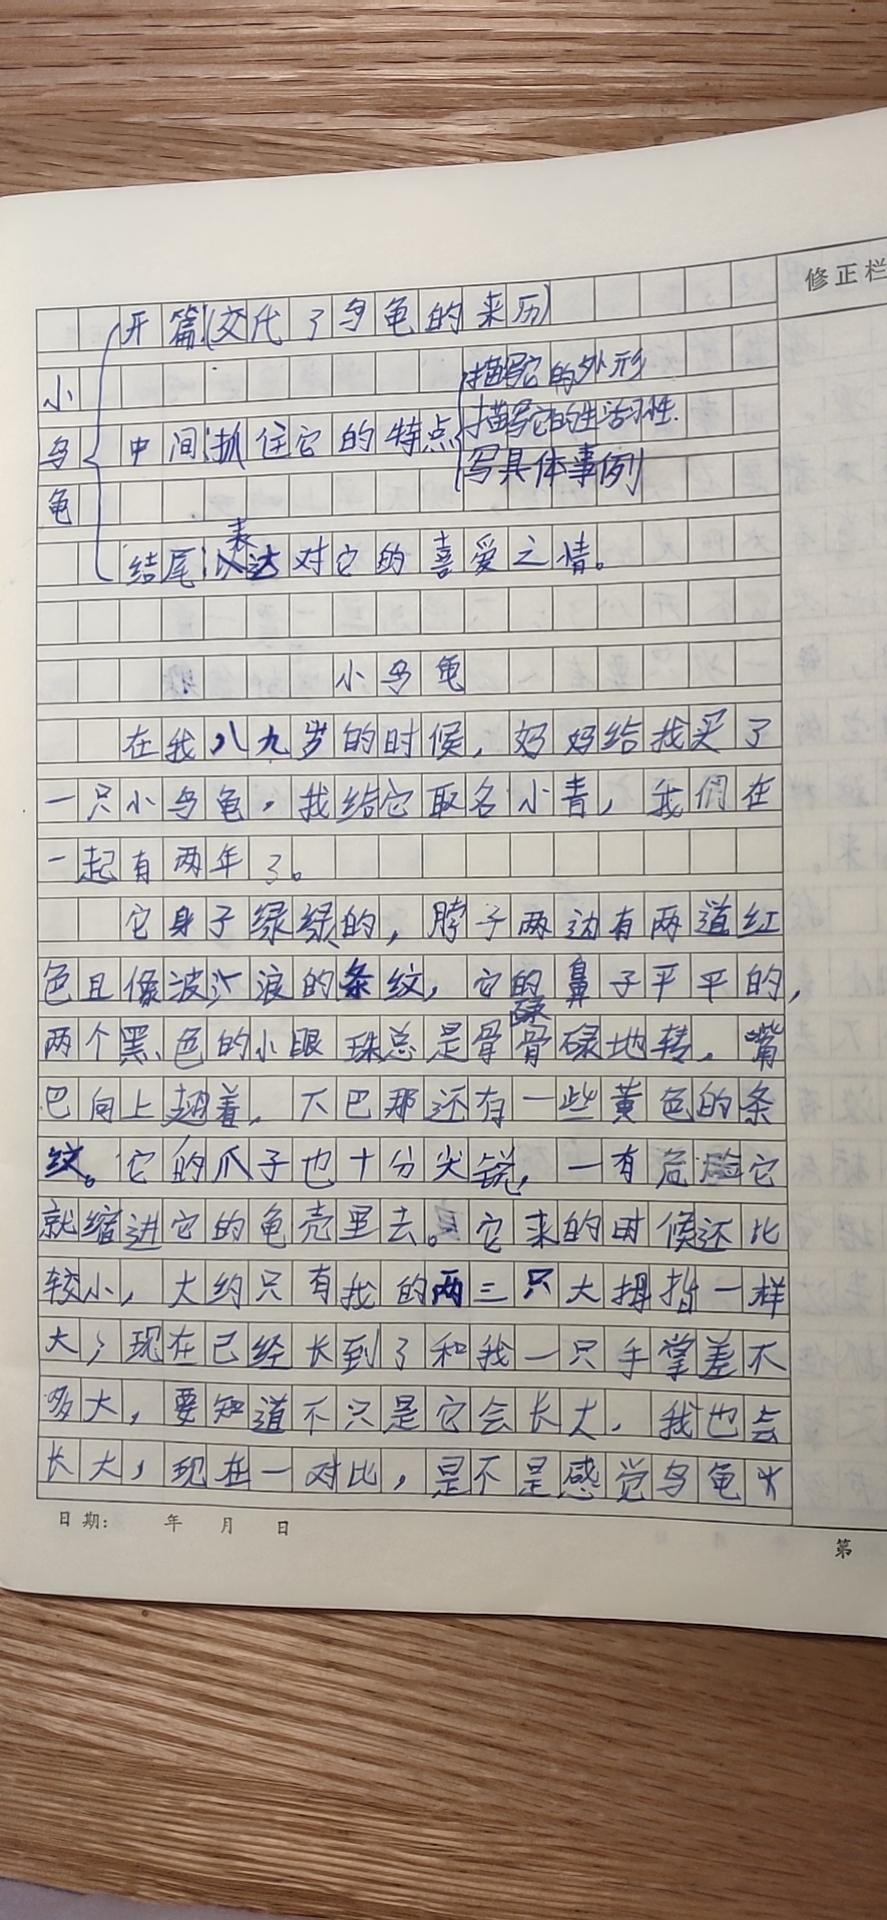 修正栏
开篇(交代了乌龟的来历)
小
描写它的外形
乌
中间:抓住它的特点
描写它的生活习性.
写具体事例
龟
表
结尾:达对它的喜爱之情。
小乌龟
在我八九岁的时候,妈妈给我买了
一只小乌龟,我给它取名小青,我们在
一起有两年了。
它身子绿绿的,脖子两边有两道红
色且像波浪的条纹,它的鼻子平平的,
两个黑色的小眼珠总是骨碌骨碌地转,嘴
巴向上翘着,下巴那还有一些黄色的条
纹。它的爪子也十分尖锐,一有危险它
就缩进它的龟壳里去。它来的时候还比
较小,大约只有我的两三只大拇指一样
大,现在已经长到了和我一只手掌差不
多大,要知道不只是它会长大,我也会
长大,现在一对比,是不是感觉乌龟
日期: 年 月 日
第